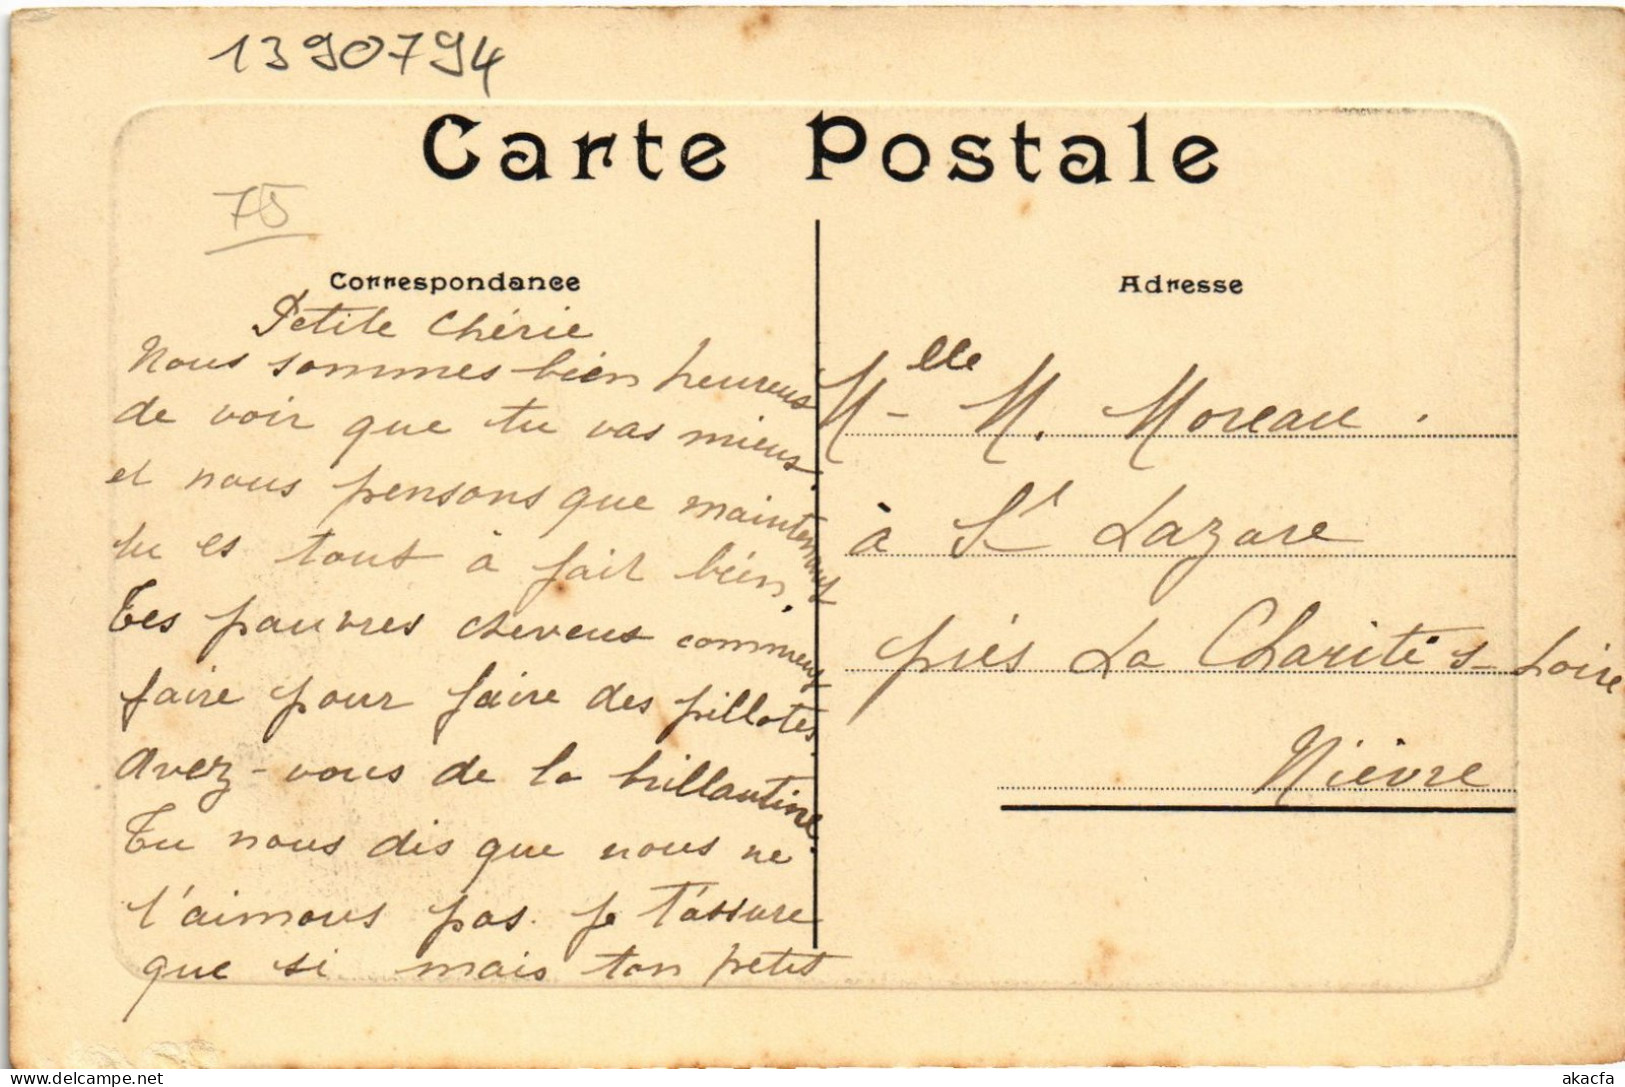 1390794
Carte Postale
75
Correspondance
Petite Chérie
Nous sommes bien heureux
de voir que tu vas mieux.
et nous pensons que maintenant
tu es tout à fait bien.
Tes pauvres cheveux
faire pour faire des pillotes.
Avez-vous de la brillantine.
Tu nous dis que nous ne
t'aimons pas. je t'assure
que si mais ton petit
Adresse
Mlle M. Moreau.
à St Lazare
près La Charité s- Loire
Nièvre
delcampe.net
akacfa